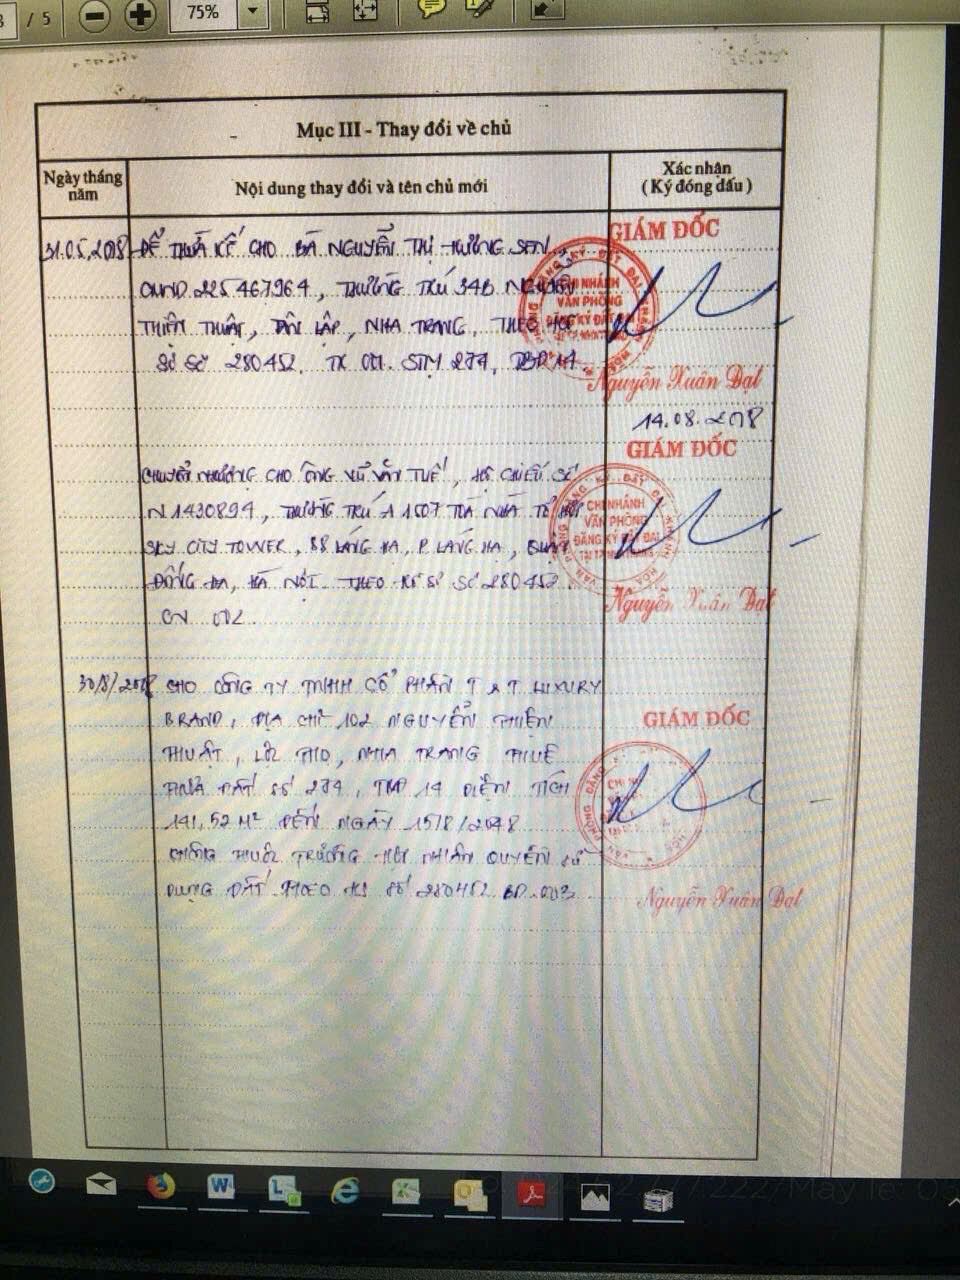 / 5
75%
Mục III - Thay đổi về chủ
Ngày tháng năm
Nội dung thay đổi và tên chủ mới
Xác nhận
( Ký đóng dấu )
31.05.2018 ĐỂ THỪA KẾ CHO BÀ NGUYỄN THỊ HƯƠNG SEN
CMND 225467964, THƯỜNG TRÚ 34B NGUYỄN
THIỆN THUẬT, TÂN LẬP, NHA TRANG, THEO
SỐ 280452. TK 001. STM 274,
GIÁM ĐỐC
CHI NHÁNH
VĂN PHÒNG
ĐĂNG KÝ ĐẤT ĐAI
Nguyễn Xuân Đạt
14.08.2018
GIÁM ĐỐC
CHUYỂN NHƯỢNG CHO ÔNG VŨ VĂN TUẾ, HỘ CHIẾU SỐ
N1430894, THƯỜNG TRÚ A1507 TOÀ NHÀ
SKY CITY TOWER, 88 LÁNG HẠ, P. LÁNG HẠ, QUẬN
ĐỐNG ĐA, HÀ NỘI. THEO SỐ 280452.
CN 002
CHI NHÁNH
VĂN PHÒNG
ĐĂNG KÝ ĐẤT ĐAI
Nguyễn Xuân Đạt
30/8/2018 CHO CÔNG TY TNHH CỔ PHẦN T & T LUXURY
BRAND, ĐỊA CHỈ 102 NGUYỄN THIỆN
THUẬT, LỘC THỌ, NHA TRANG THUÊ
THỬA ĐẤT SỐ 274, 14 DIỆN TÍCH
141,52 M² ĐẾN NGÀY
THUỘC TRƯỜNG HỢP NHẬN QUYỀN SỬ
DỤNG ĐẤT THEO SỐ 280452 BD.003
GIÁM ĐỐC
Nguyễn Xuân Đạt